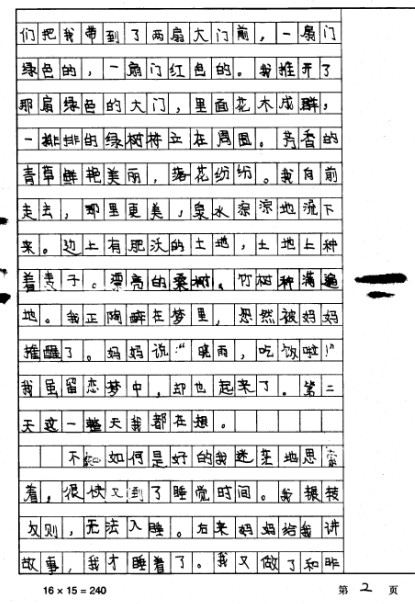 们把我带到了两扇大门前，一扇门
绿色的，一扇门红色的。我推开了
那扇绿色的大门，里面花木成群，
一排排的绿树林立在周围。芳香的
青草鲜艳美丽，落花纷纷。我向前
走去，那里更美，泉水淙淙地流下
来。边上有肥沃的土地，土地上种
着麦子。漂亮的桑树、竹树种满遍
地。我正陶醉在梦里，忽然被妈妈
推醒了。妈妈说：“晓雨，吃饭啦！”
我虽留恋梦中，却也起来了。第二
天这一整天我都在想。
不知如何是好的我迷茫地思索
着，很快又到了睡觉时间。我辗转
反侧，无法入睡。后来妈妈给我讲
故事，我才睡着了。我又做了和昨
16 × 15 = 240 第 2 页